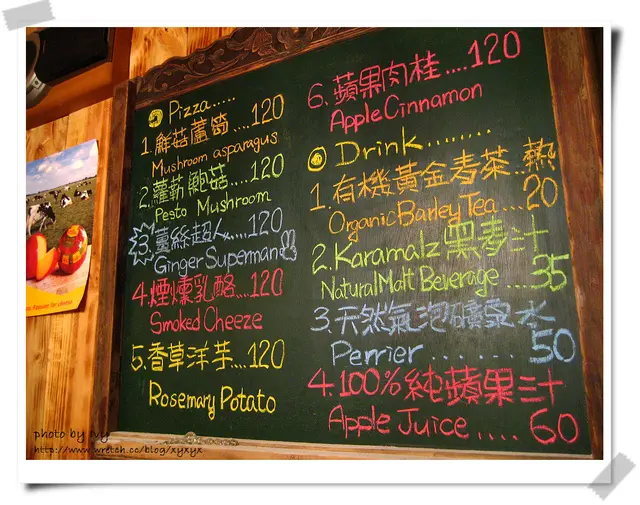 Pizza.....
1.鮮菇蘆筍....120
Mushroom asparagus
2.蘿勒鮑菇....120
Pesto Mushroom
3.薑絲超人.....120
Ginger Superman
4.煙燻乳酪....120
Smoked Cheeze
5.香草洋芋....120
Rosemary Potato
6.蘋果肉桂....120
Apple Cinnamon
Drink........
1.有機黃金麦茶..熱
Organic Barley Tea...20
2.Karamalz 黑麦汁
Natural Malt Beverage ...35
3.天然氣泡礦泉水
Perrier.......50
4.100%純蘋果汁
Apple Juice.....60
photo by Ivy
http://www.wretch.cc/blog/xyxyx